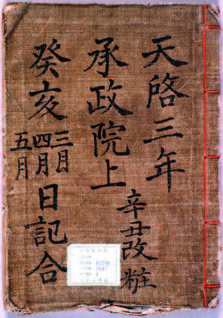 天啓三年
承政院上
辛丑改粧
癸亥
三月
四月
五月
日記合